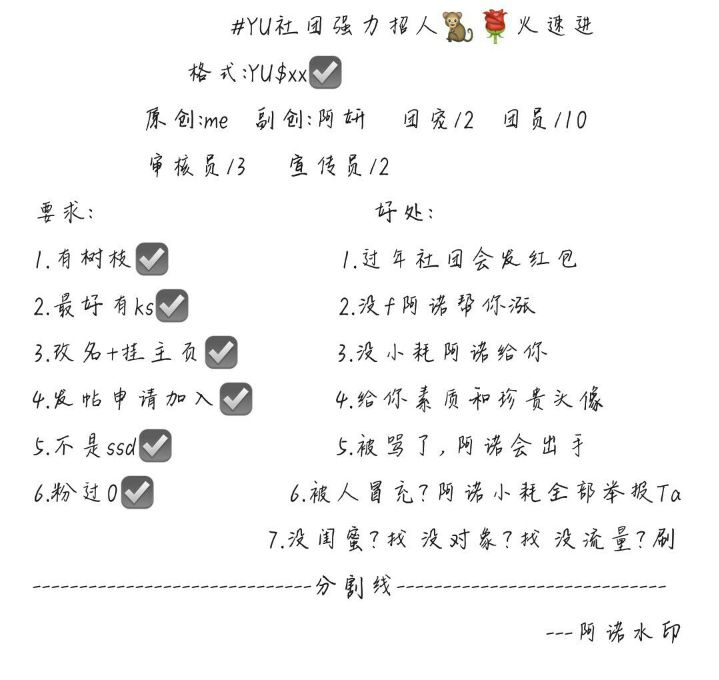 #YU社团强力招人🐒🌹火速进
格式:YU$xx✅
原创:me 副创:阿妍 团宠/2 团员/10
审核员/3 宣传员/2
要求: 好处:
1.有树枝✅ 1.过年社团会发红包
2.最好有ks✅ 2.没f阿诺帮你涨
3.改名+挂主页✅ 3.没小耗阿诺给你
4.发帖申请加入✅ 4.给你素质和珍贵头像
5.不是ssd✅ 5.被骂了,阿诺会出手
6.粉过0✅ 6.被人冒充?阿诺小耗全部举报Ta
7.没闺蜜?找 没对象?找 没流量?刷
------------------------------分割线-----------------------------
---阿诺水印